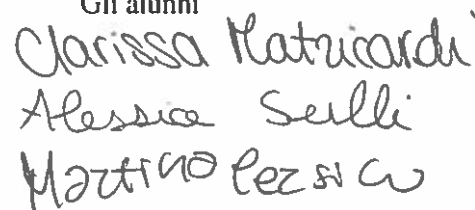 Gli alunni
Clarissa Matricardi
Alessia Serlli
Martina Persico